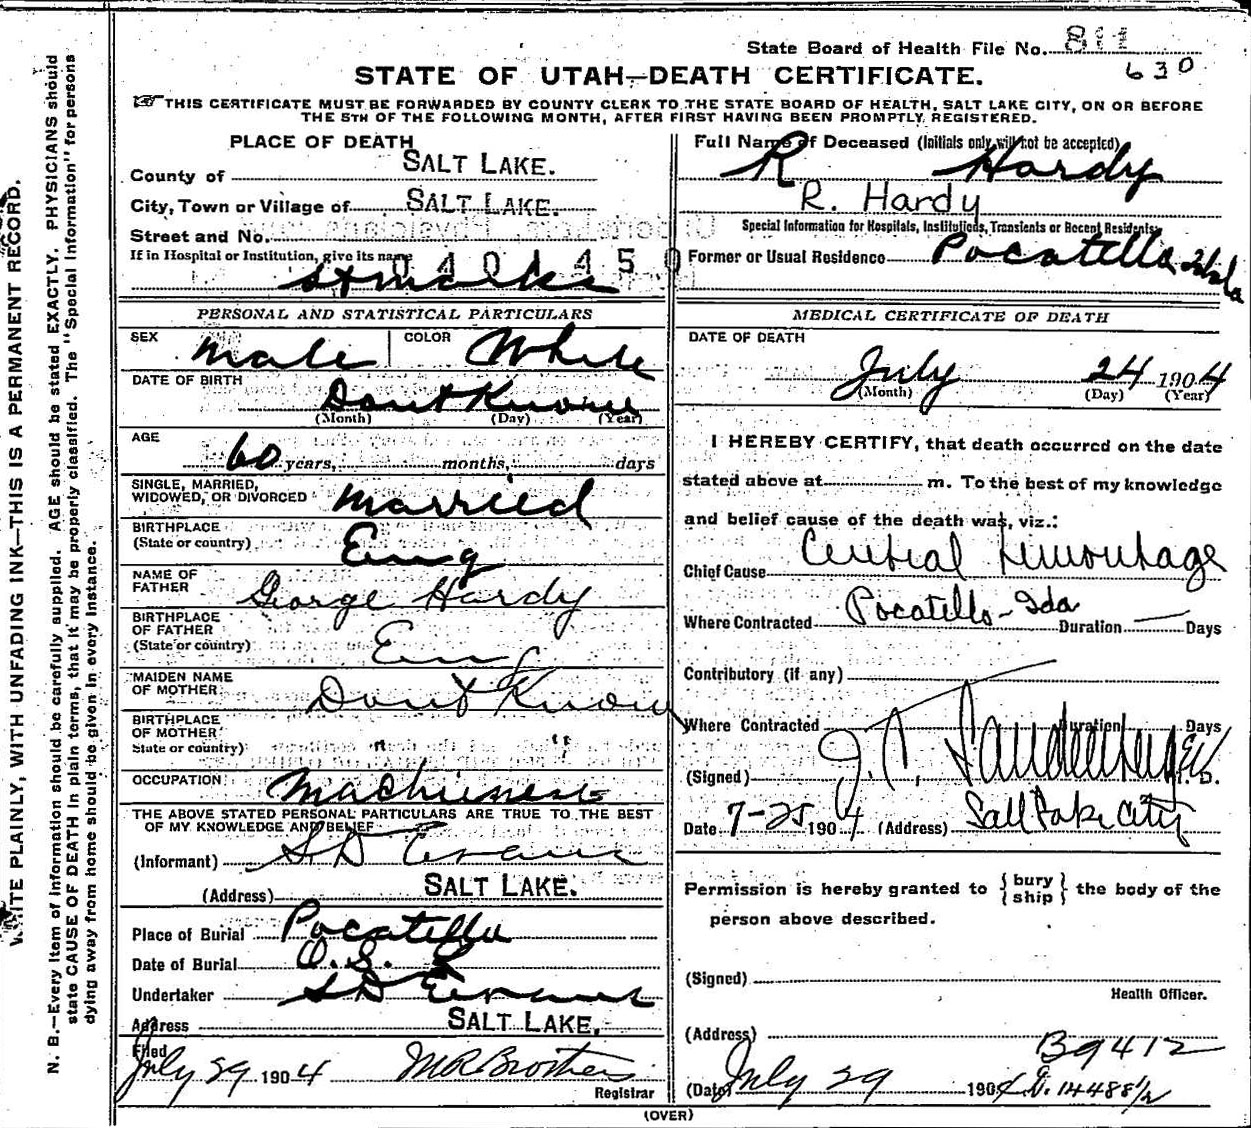 State Board of Health File No. 811
630
STATE OF UTAH—DEATH CERTIFICATE.
THIS CERTIFICATE MUST BE FORWARDED BY COUNTY CLERK TO THE STATE BOARD OF HEALTH, SALT LAKE CITY, ON OR BEFORE
THE 5TH OF THE FOLLOWING MONTH, AFTER FIRST HAVING BEEN PROMPTLY REGISTERED.
WRITE PLAINLY, WITH UNFADING INK—THIS IS A PERMANENT RECORD.
N. B.—Every item of information should be carefully supplied. AGE should be stated EXACTLY. PHYSICIANS should
state CAUSE OF DEATH in plain terms, that it may be properly classified. The "Special Information" for persons
dying away from home should be given in every instance.
PLACE OF DEATH
County of SALT LAKE.
City, Town or Village of SALT LAKE.
Street and No.
If in Hospital or Institution, give its name
0401450
St Marks
PERSONAL AND STATISTICAL PARTICULARS
SEX Male COLOR White
DATE OF BIRTH Dont Know
(Month) (Day) (Year)
AGE
60 years, months, days
SINGLE, MARRIED,
WIDOWED, OR DIVORCED Married
BIRTHPLACE
(State or country) Eng
NAME OF
FATHER George Hardy
BIRTHPLACE
OF FATHER
(State or country) Eng
MAIDEN NAME
OF MOTHER Dont Know
BIRTHPLACE
OF MOTHER
State or country) " "
OCCUPATION Machinest
THE ABOVE STATED PERSONAL PARTICULARS ARE TRUE TO THE BEST
OF MY KNOWLEDGE AND BELIEF
(Informant) S D Evans
(Address) SALT LAKE.
Place of Burial Pocatello
Date of Burial O. S. L
Undertaker S D Evans
Address SALT LAKE.
Filed
July 29 1904 M R Brothers
Registrar
Full Name of Deceased (Initials only will not be accepted)
R Hardy
R. Hardy
Special Information for Hospitals, Institutions, Transients or Recent Residents.
Former or Usual Residence Pocatello Ida
MEDICAL CERTIFICATE OF DEATH
DATE OF DEATH
July 24 1904
(Month) (Day) (Year)
I HEREBY CERTIFY, that death occurred on the date
stated above at m. To the best of my knowledge
and belief cause of the death was, viz.:
Chief Cause Cerebral Hemorrhage
Where Contracted Pocatello - Ida Duration — Days
Contributory (if any)
Where Contracted Duration Days
(Signed) M. D.
Date 7-25 1904 (Address) Salt Lake City
Permission is hereby granted to { bury
ship } the body of the
person above described.
(Signed)
Health Officer.
(Address)
B9412
(Date) July 29 1904 D. 14488 1/2
(OVER)